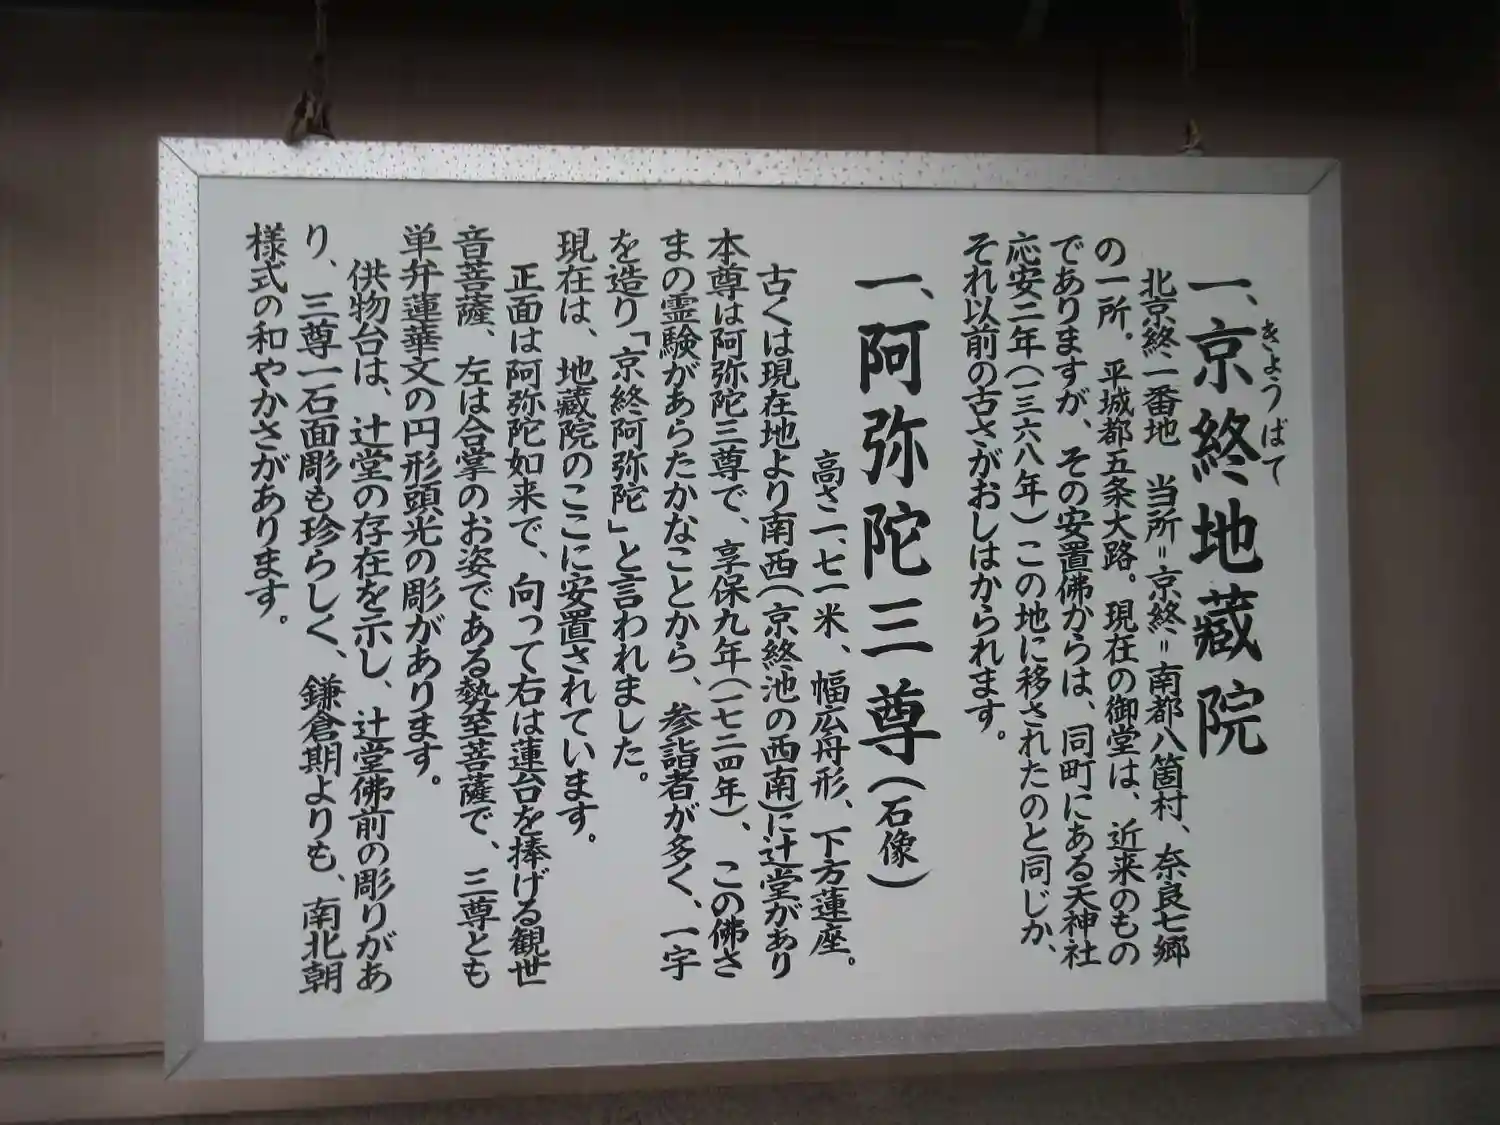 一、京終地蔵院
きょうばて
北京終一番地　当所＝京終＝南都八箇村、奈良七郷
の一所。平城都五条大路。現在の御堂は、近来のもの
でありますが、その安置佛からは、同町にある天神社
応安二年（一三六八年）この地に移されたのと同じか、
それ以前の古さがおしはかられます。
一、阿弥陀三尊（石像）
高さ一、七一米、幅広舟形、下方蓮座。
古くは現在地より南西（京終池の西南）に辻堂があり
本尊は阿弥陀三尊で、享保九年（一七二四年）、この佛さ
まの霊験があらたかなことから、参詣者が多く、一宇
を造り「京終阿弥陀」と言われました。
現在は、地蔵院のここに安置されています。
正面は阿弥陀如来で、向って右は蓮台を捧げる観世
音菩薩、左は合掌のお姿である勢至菩薩で、三尊とも
単弁蓮華文の円形頭光の彫があります。
供物台は、辻堂の存在を示し、辻堂佛前の彫りがあ
り、三尊一石面彫も珍らしく、鎌倉期よりも、南北朝
様式の和やかさがあります。